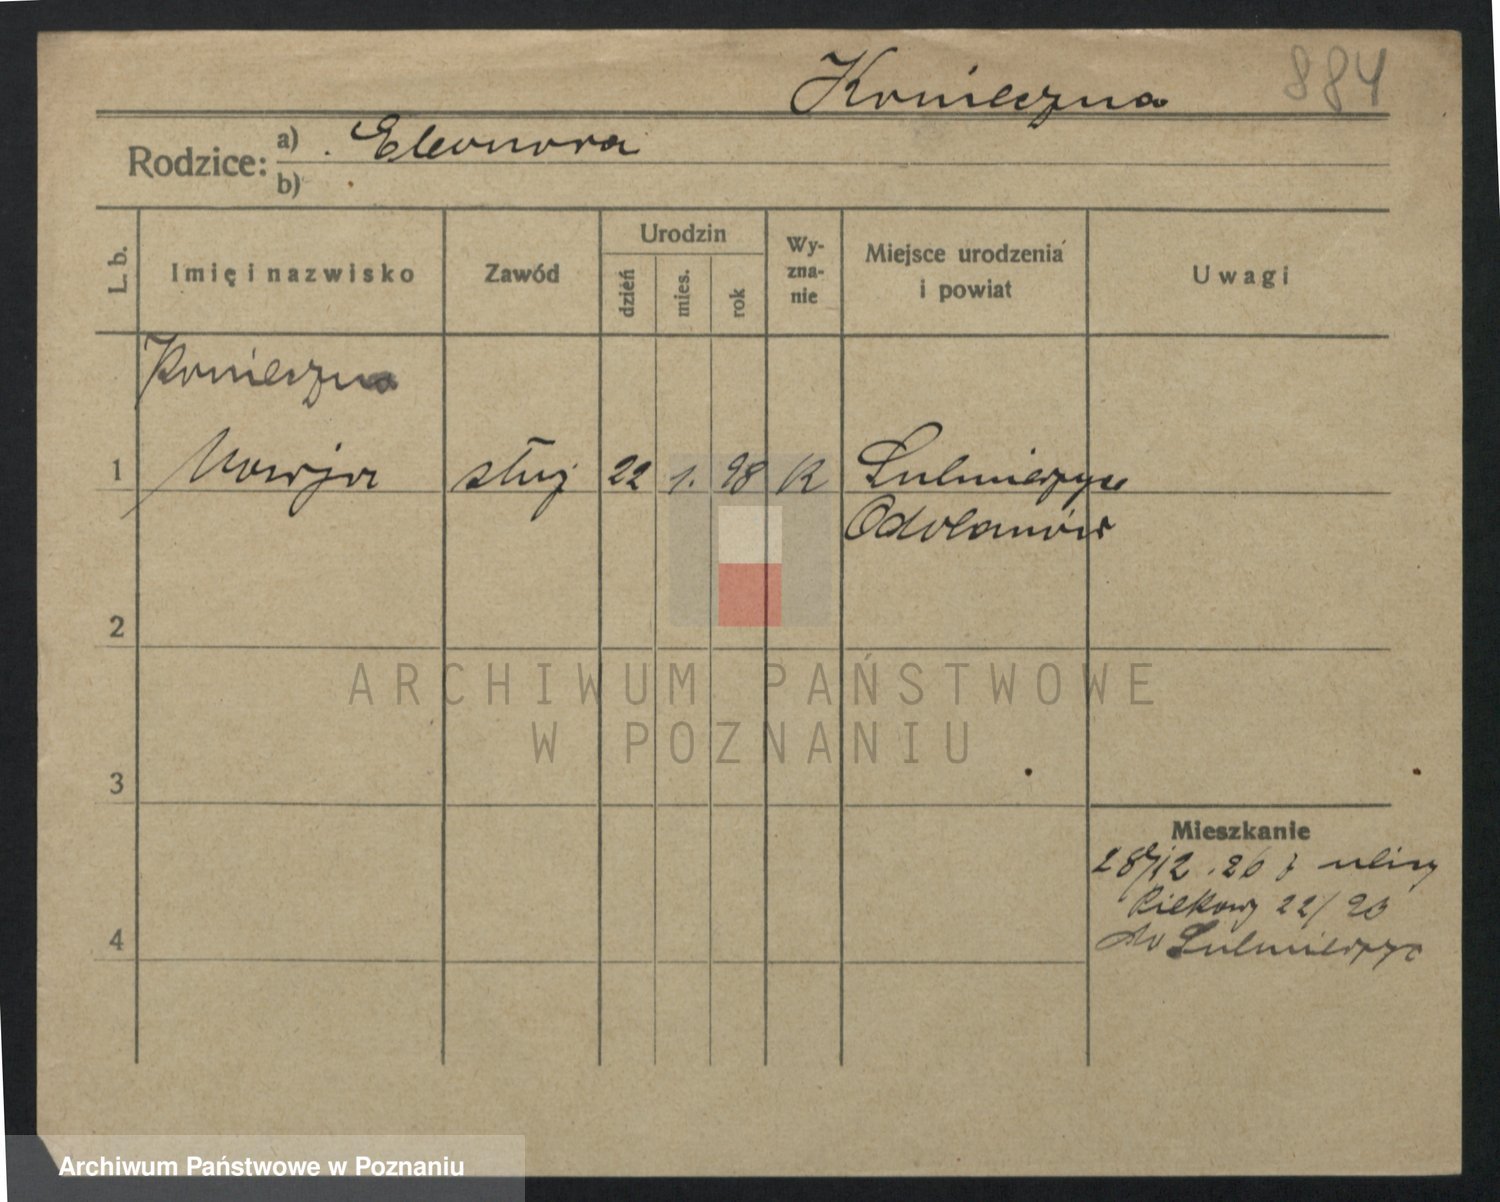 Konieczna 884
Rodzice: a) Eleonora
b)
L. b.
Imię i nazwisko
Zawód
Urodzin
dzień
mies.
rok
Wy-
zna-
nie
Miejsce urodzenia
i powiat
Uwagi
Konieczna
1 Marja służ 22 1. 98 K Sulmierzyce
Odolanów
2
3
4
Mieszkanie
28/12. 26 z ulicy
22/23
do Sulmierzyc
ARCHIWUM PAŃSTWOWE
W POZNANIU
Archiwum Państwowe w Poznaniu